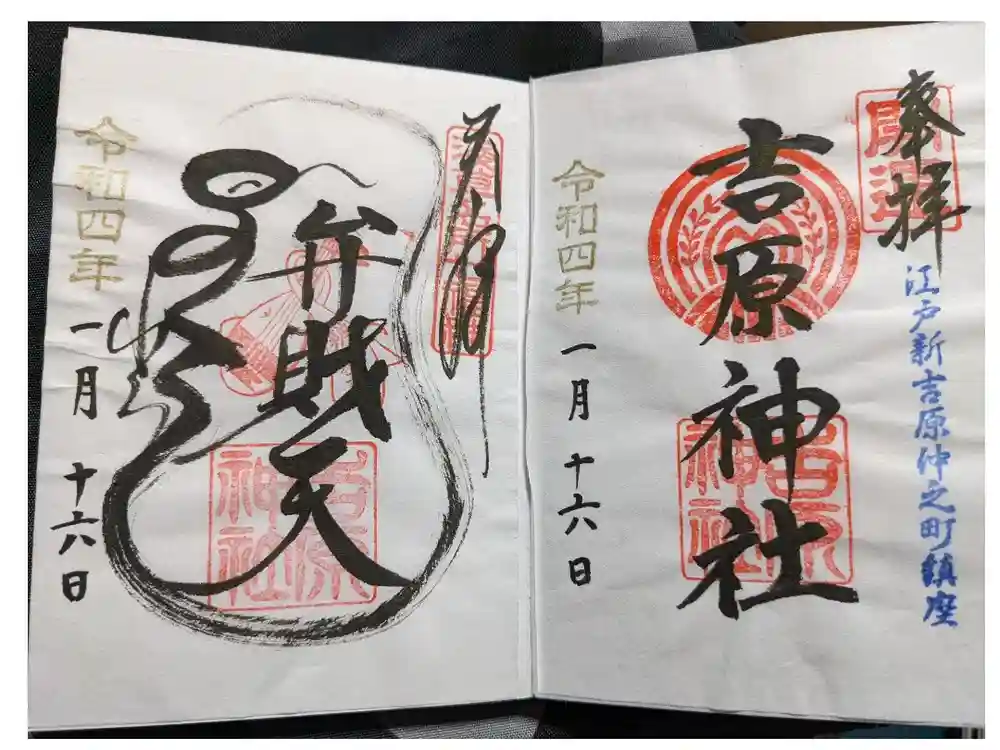 奉拝
開運
江戸新吉原仲之町鎮座
吉原神社
吉原神社
令和四年一月十六日
弁財天
吉原神社
令和四年一月十六日